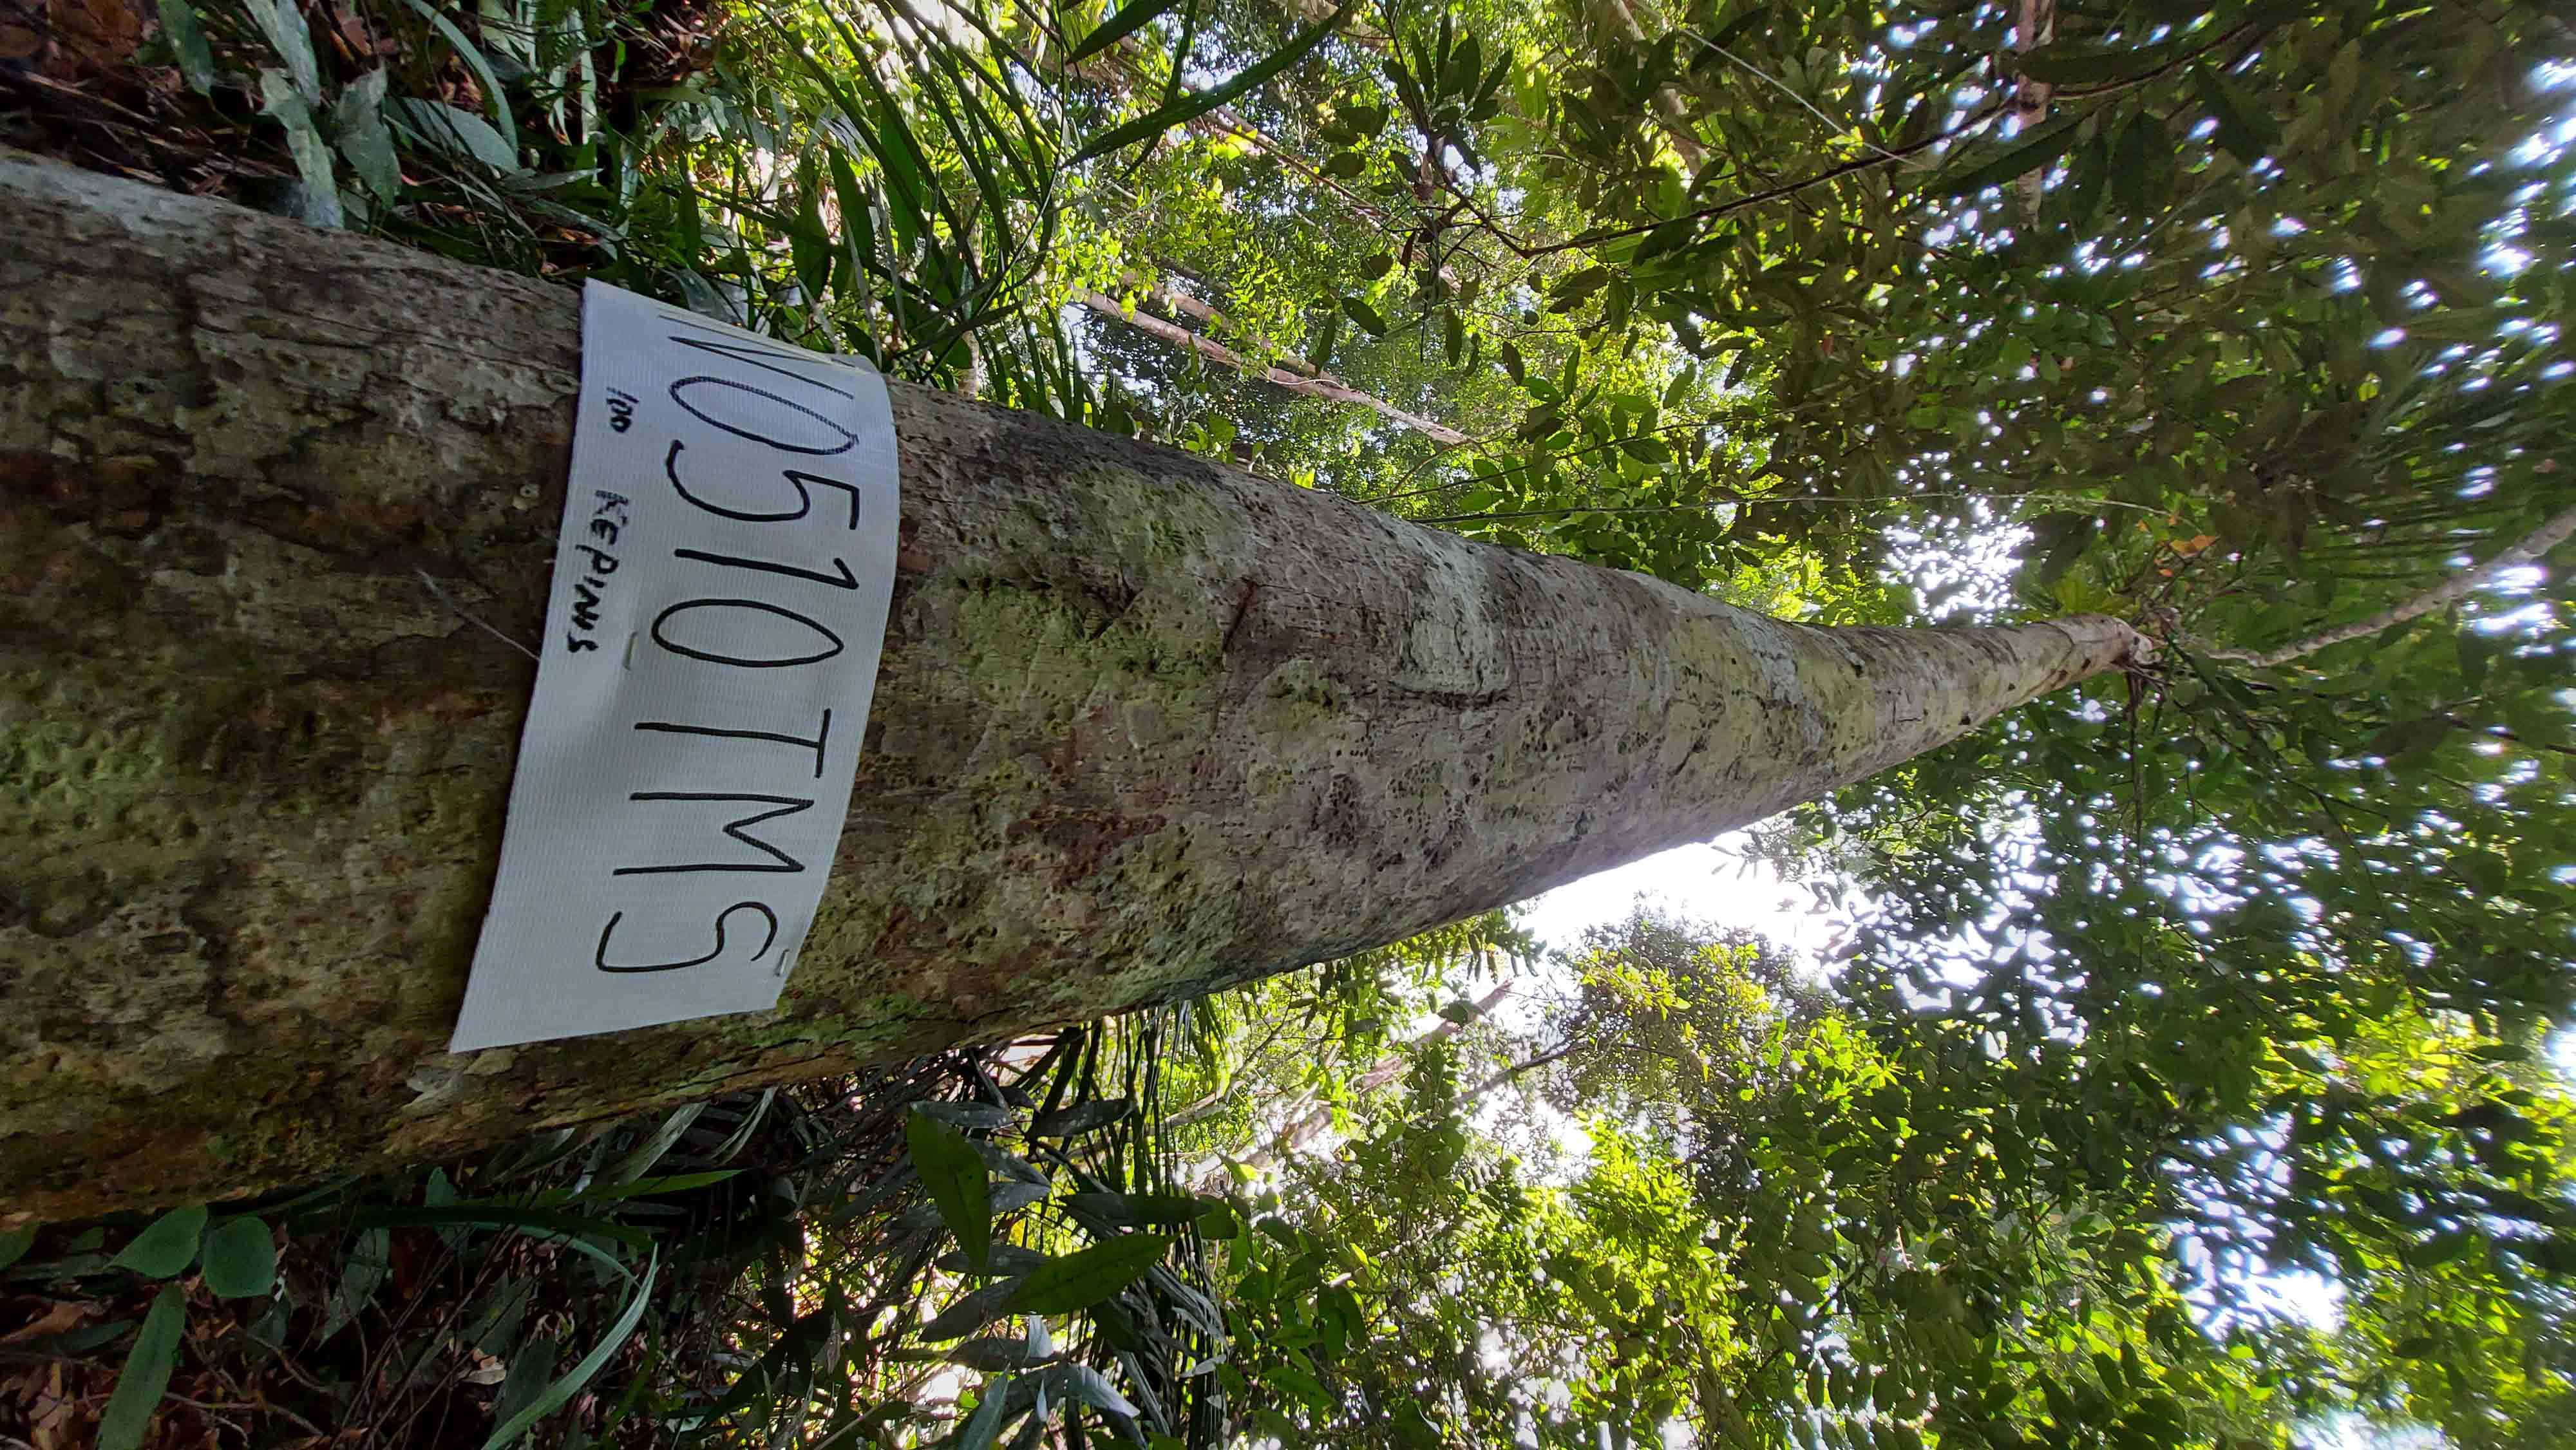 NO510TMS
100 KEPINIS